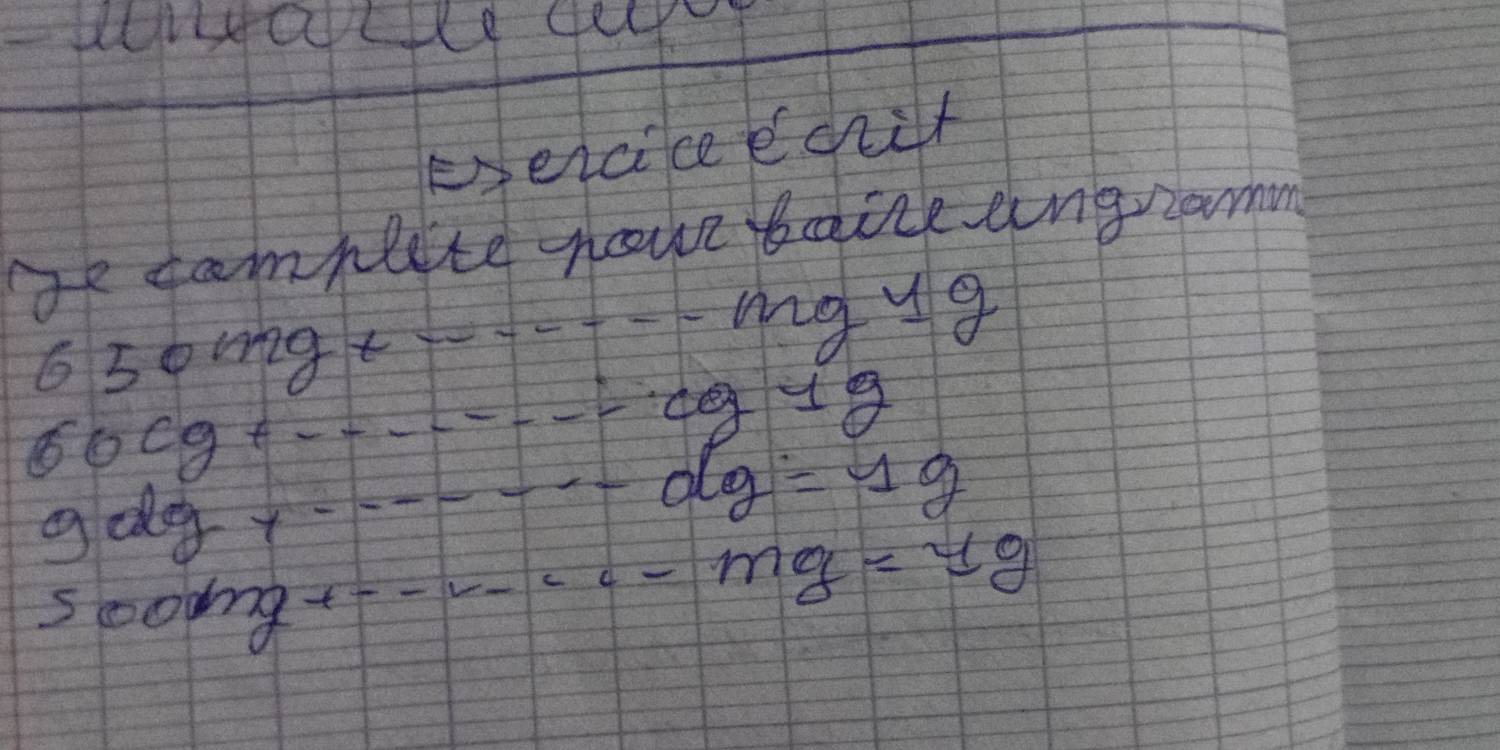 Exercice écrit
Je complète pour faire un gramm
650mg + -------- mg 1g
60cg + -------- cg 1g
9dg + ------- dg = 1g
500mg + ------- mg = 1g